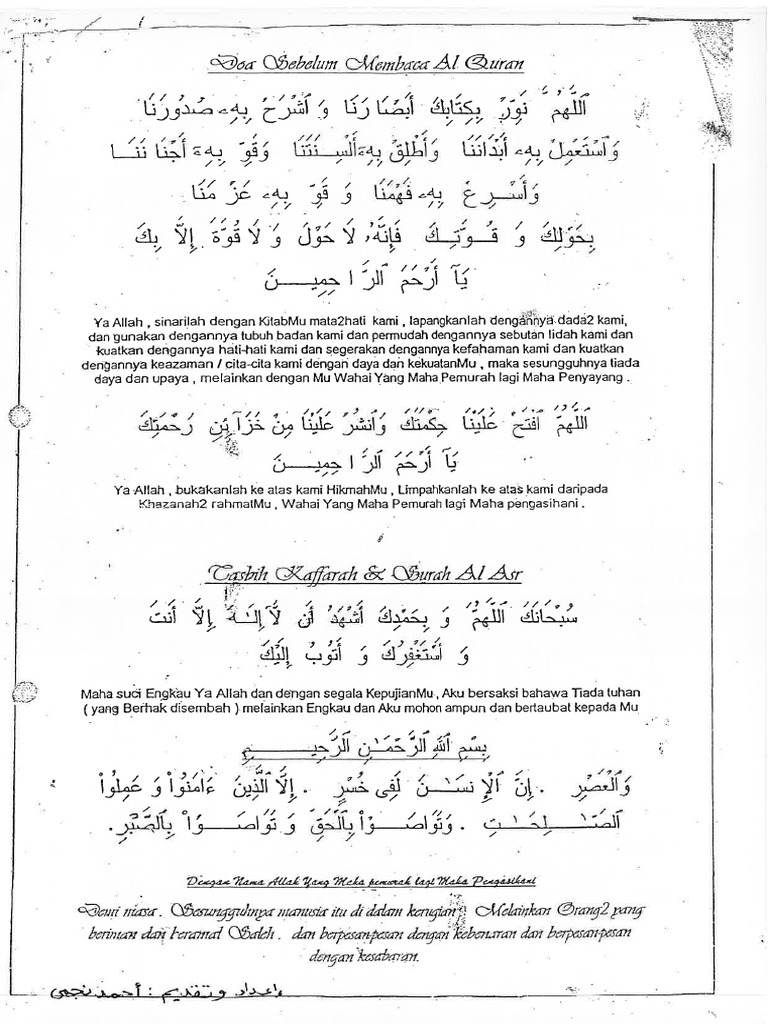 Doa Sebelum Membaca Al Quran
اَللَّهُمَّ نَوِّرْ بِكِتَابِكَ أَبْصَارَنَا وَ ٱشْرَحْ بِهِۦ صُدُورَنَا
وَٱسْتَعْمِلْ بِهِۦ أَبْدَانَنَا وَأَطْلِقْ بِهِۦ أَلْسِنَتَنَا وَقَوِّ بِهِۦ أَجْنَانَنَا
وَأَسْرِعْ بِهِۦ فَهْمَنَا وَ قَوِّ بِهِۦ عَزْمَنَا
بِحَوْلِكَ وَ قُوَّتِكَ فَإِنَّهُۥ لَا حَوْلَ وَ لَا قُوَّةَ إِلَّا بِكَ
يَآ أَرْحَمَ ٱلرَّاحِمِينَ
Ya Allah , sinarilah dengan KitabMu mata2hati kami , lapangkanlah dengannya dada2 kami,
dan gunakan dengannya tubuh badan kami dan permudah dengannya sebutan lidah kami dan
kuatkan dengannya hati-hati kami dan segerakan dengannya kefahaman kami dan kuatkan
dengannya keazaman / cita-cita kami dengan daya dan kekuatanMu , maka sesungguhnya tiada
daya dan upaya , melainkan dengan Mu Wahai Yang Maha Pemurah lagi Maha Penyayang .
اَللَّهُمَّ ٱفْتَحْ عَلَيْنَا حِكْمَتَكَ وَٱنْشُرْ عَلَيْنَا مِنْ خَزَآئِنِ رَحْمَتِكَ
يَآ أَرْحَمَ ٱلرَّاحِمِينَ
Ya Allah , bukakanlah ke atas kami HikmahMu , Limpahkanlah ke atas kami daripada
Khazanah2 rahmatMu , Wahai Yang Maha Pemurah lagi Maha pengasihani .
Tasbih Kaffarah & Surah Al Asr
سُبْحَانَكَ ٱللَّهُمَّ وَ بِحَمْدِكَ أَشْهَدُ أَن لَّآ إِلَـٰهَ إِلَّا أَنتَ
وَ أَسْتَغْفِرُكَ وَ أَتُوبُ إِلَيْكَ
Maha suci Engkau Ya Allah dan dengan segala KepujianMu , Aku bersaksi bahawa Tiada tuhan
( yang Berhak disembah ) melainkan Engkau dan Aku mohon ampun dan bertaubat kepada Mu
بِسْمِ ٱللَّهِ ٱلرَّحْمَـٰنِ ٱلرَّحِيمِ
وَٱلْعَصْرِ . إِنَّ ٱلْإِنسَـٰنَ لَفِى خُسْرٍ . إِلَّا ٱلَّذِينَ ءَامَنُوا۟ وَ عَمِلُوا۟
ٱلصَّـٰلِحَـٰتِ . وَتَوَاصَوْا۟ بِٱلْحَقِّ وَ تَوَاصَوْا۟ بِٱلصَّبْرِ .
Dengan Nama Allah Yang Maha pemurah lagi Maha Pengasihani
Demi masa . Sesungguhnya manusia itu di dalam kerugian . Melainkan Orang2 yang
beriman dan beramal Saleh . dan berpesan-pesan dengan kebenaran dan berpesan-pesan
dengan kesabaran.
إعداد وتقديم : أحمد نجمي